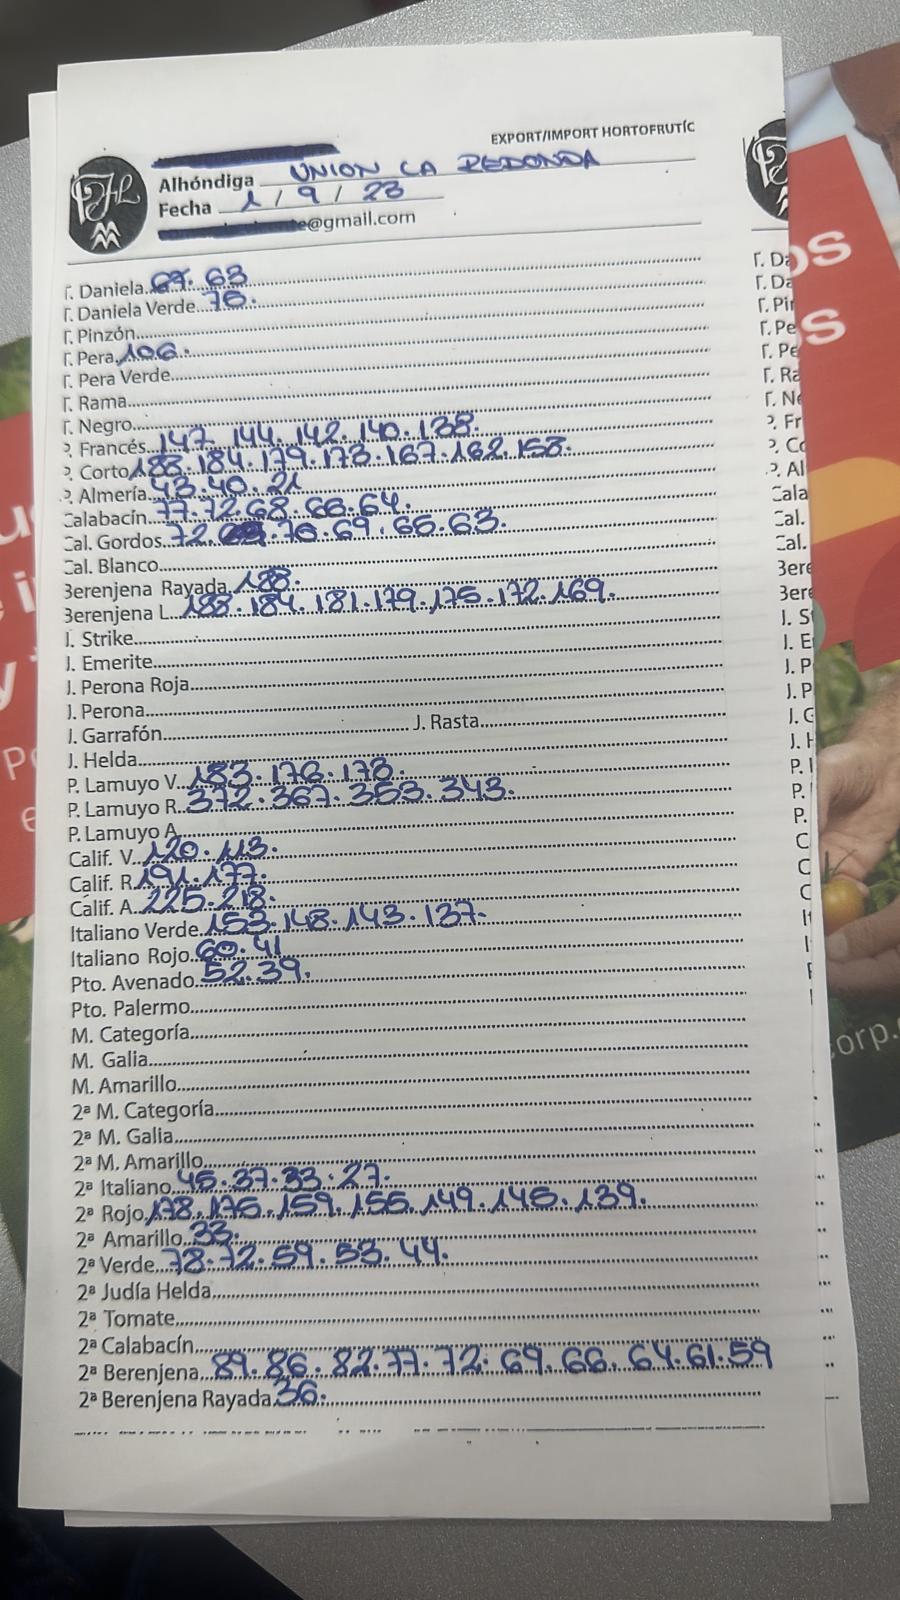 EXPORT/IMPORT HORTOFRUTÍC
Alhóndiga UNION LA REDONDA
Fecha 1/9/23
@gmail.com
T. Daniela 63
T. Daniela Verde 76.
T. Pinzón
T. Pera 106.
T. Pera Verde
T. Rama
T. Negro
P. Francés 147. 144. 142. 140. 138.
P. Corto 188. 184. 179. 173. 167. 162. 158.
P. Almería 43. 40. 21
Calabacín 77. 72. 68. 66. 64.
Cal. Gordos 72. 70. 69. 65. 63.
Cal. Blanco
Berenjena Rayada 188.
Berenjena L. 188. 184. 181. 179. 175. 172. 169.
J. Strike
J. Emerite
J. Perona Roja
J. Perona
J. Garrafón J. Rasta
J. Helda
P. Lamuyo V. 183. 176. 173.
P. Lamuyo R. 372. 367. 353. 343.
P. Lamuyo A.
Calif. V. 120. 113.
Calif. R. 191. 177.
Calif. A. 225. 218.
Italiano Verde 153. 148. 143. 137.
Italiano Rojo 60. 41
Pto. Avenado 52. 39.
Pto. Palermo
M. Categoría
M. Galia
M. Amarillo
2ª M. Categoría
2ª M. Galia
2ª M. Amarillo
2ª Italiano 45. 37. 33. 27.
2ª Rojo 178. 175. 159. 155. 149. 145. 139.
2ª Amarillo 33.
2ª Verde 78. 72. 59. 53. 44.
2ª Judía Helda
2ª Tomate
2ª Calabacín
2ª Berenjena 89. 86. 82. 77. 72. 69. 66. 64. 61. 59
2ª Berenjena Rayada 36.